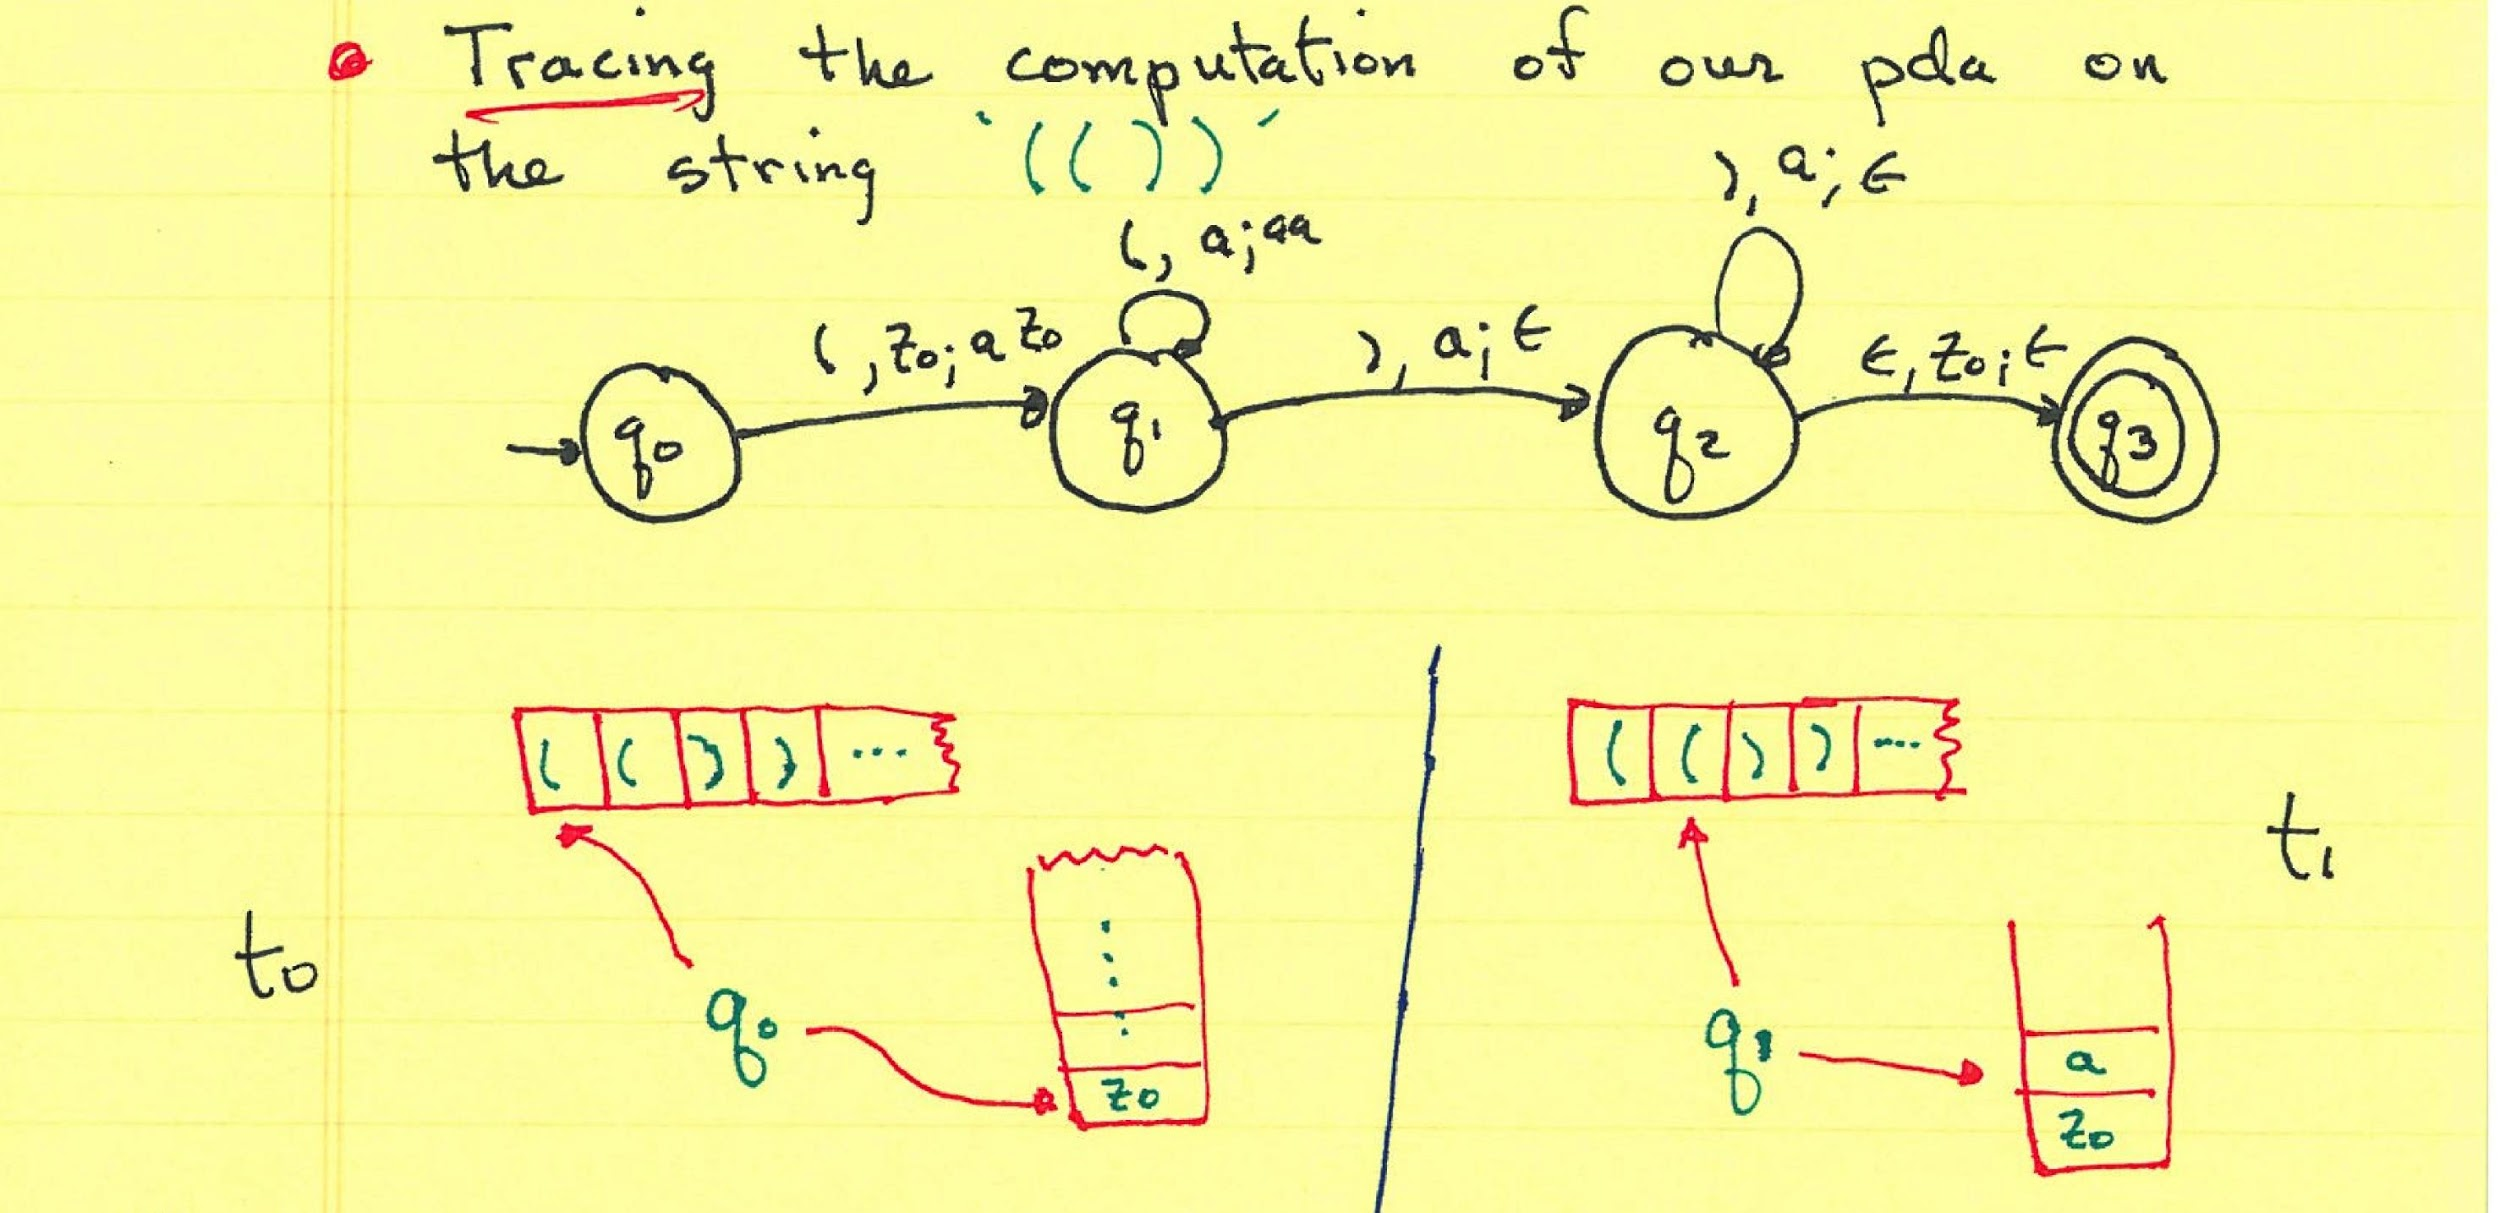 Tracing the computation of our pda on
the string '(())'
), a; ε
(, a; aa
(, z0; a z0
), a; ε
ε, z0; ε
q0
q1
q2
q3
( ( ) ) ...
( ( ) ) ...
t1
t0
q0
z0
q1
a
z0